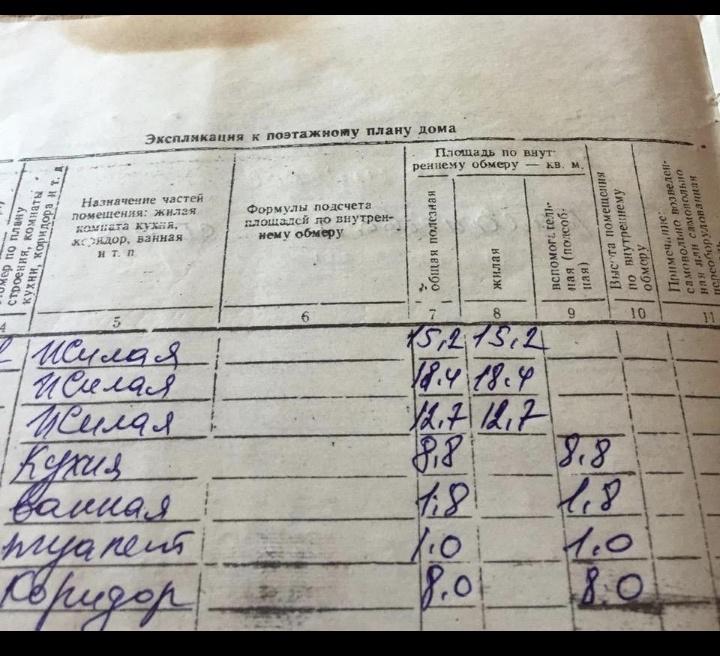 Экспликация к поэтажному плану дома
строения, комнаты
кухни, коридора и т. д
Назначение частей
помещения: жилая
комната кухня,
коридор, ванная
и т. п
Формулы подсчета
площадей по внутрен-
нему обмеру
Площадь по внут-
реннему обмеру — кв. м.
общая полезная
жилая
вспомогатель-
ная (подсоб-
ная)
Высота помещения
по внутреннему
обмеру
самовольно возведен-
ная или самовольно
4 5 6 7 8 9 10 11
Жилая 15,2 15,2
Жилая 18.4 18.4
Жилая 12,7 12,7
Кухня 8,8 8,8
ванная 1,8 1,8
туалет 1.0 1.0
Коридор 8.0 8.0